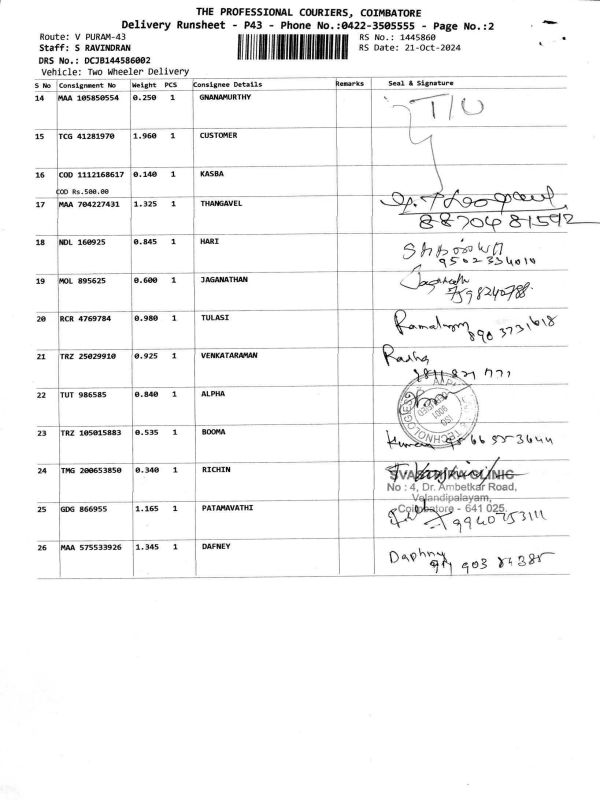 THE PROFESSIONAL COURIERS, COIMBATORE
Delivery Runsheet - P43 - Phone No.:0422-3505555 - Page No.:2
Route: V PURAM-43 RS No.: 1445860
Staff: S RAVINDRAN RS Date: 21-Oct-2024
DRS No.: DCJB144586002
Vehicle: Two Wheeler Delivery
S No Consignment No Weight PCS Consignee Details Remarks Seal & Signature
14 MAA 105850554 0.250 1 GNANAMURTHY T/U
15 TCG 41281970 1.960 1 CUSTOMER
16 COD 1112168617 0.140 1 KASBA
COD Rs.500.00
17 MAA 704227431 1.325 1 THANGAVEL
8870481592
18 NDL 160925 0.845 1 HARI
9502334010
19 MOL 895625 0.600 1 JAGANATHAN Jaganath
7598240788.
20 RCR 4769784 0.980 1 TULASI
21 TRZ 25029910 0.925 1 VENKATARAMAN
22 TUT 986585 0.840 1 ALPHA
23 TRZ 105015883 0.535 1 BOOMA
24 TMG 200653850 0.340 1 RICHIN
CLINIC
No : 4, Dr. Ambetkar Road,
Velandipalayam,
Coimbatore - 641 025.
25 GDG 866955 1.165 1 PATAMAVATHI
9940753111
26 MAA 575533926 1.345 1 DAFNEY Daphny